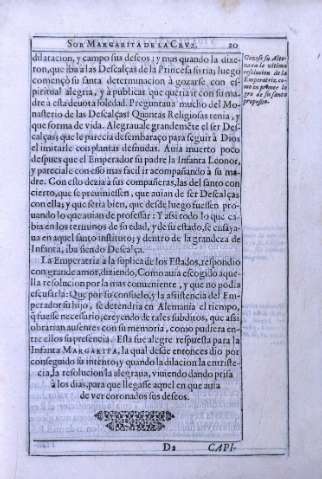 SOR MARGARITA DE LA CRVZ. 20
dilatacion, y campo sus deseos; y mas quando la dixe-
ron, que iba a las Descalças de la Princesa su tia; luego
començò su santa determinacion a gozarse con es-
piritual alegria, y à publicar que queria ir con su ma-
dre a esta deuota soledad. Preguntaua mucho del Mo-
nasterio de las Descalças? Quantas Religiosas tenia, y
que forma de vida. Alegrauale grandemẽte el ser Des-
calças; que le parecia desembaraço para seguir à Dios
el imitarle con plantas desnudas. Auia muerto poco
despues que el Emperador su padre la Infanta Leonor,
y pareciale con esso mas facil ir acompañando à su ma-
dre. Con esto dezia à sus compañeras, las del santo con-
cierto, que se preuiniessen, que auian de ser Descalças
con ella; y que seria bien, que desde luego fuessen pro-
uando lo que auian de professar: Y assi todo lo que ca-
bia en los terminos de su edad, y de su estado, se ensaya-
ua en aquel santo instituto; y dentro de la grandeza de
Infanta, iba siendo Descalça.
La Emperatriz a la suplica de los Estados, respondio
con grande amor, diziendo, Como auia escogido aque-
lla resolucion por la mas conueniente, y que no podia
escusarla: Que por su consuelo, y la assistencia del Em-
perador su hijo, se detendria en Alemania el tiempo,
q̃ fuesse necessario, creyendo de tales subditos, que assi
obrarian ausentes con su memoria, como pudiera en-
tre ellos su presencia. Esta fue alegre respuesta para la
Infanta MARGARITA, la qual desde entonces dio por
conseguido su intento, y quando la dilacion la entriste-
cia, la resolucion la alegraua, viuiendo dando prisa
à los dias, para que llegasse aquel en que auia
de ver coronados sus deseos.
Gozase su Alte-
za en la vltima
resolucion de la
Emperatriz, co-
mo en primer lo-
gro de su santo
proposito.
D2 CAPI-